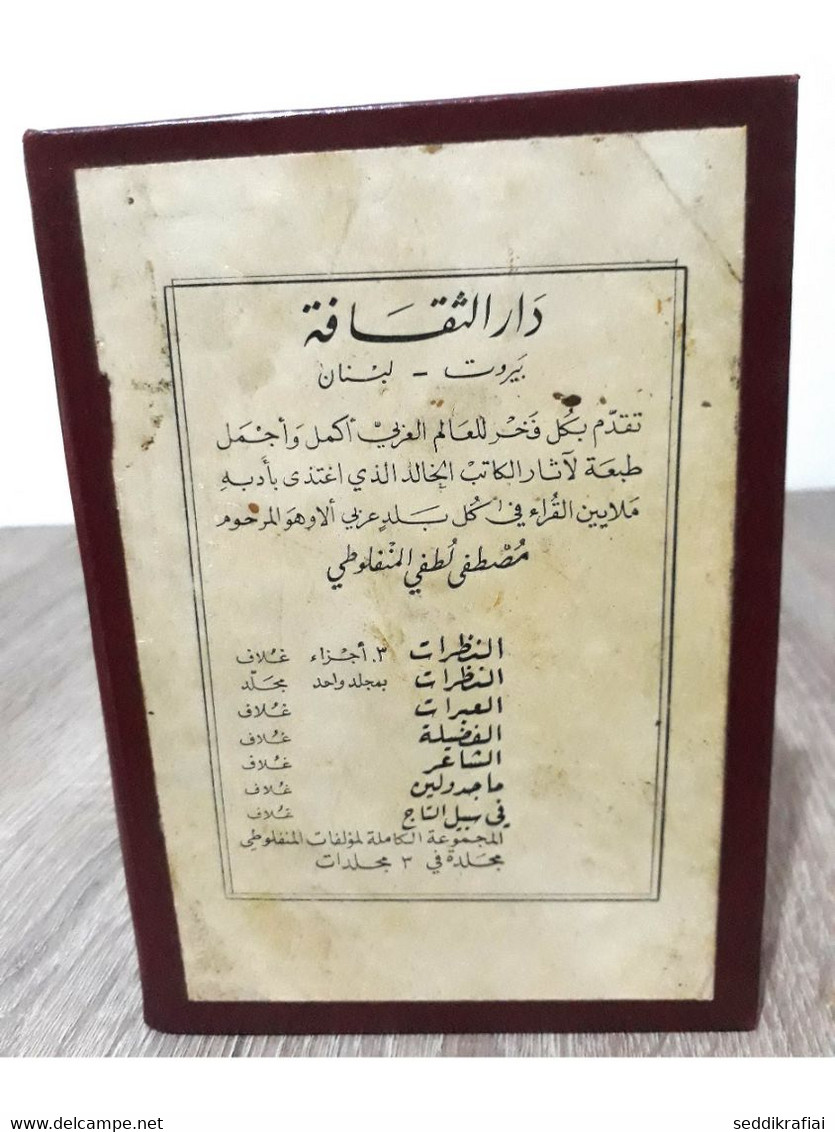 دَار الثقَافة
بَيروت - لبْنان
تقدّم بكُل فَخْر للعَالم العَربيّ أكمل وَأجْمَل
طبعَة لآثار الكاتبْ الخالد الذي اغتذى بأدبهِ
مَلايين القُراء في كُل بَلدٍ عربي ألا وهوَ المرحُوم
مُصْطفى لُطفي المنْفلوطي
النظرات ٣ أجْزاء غلاف
النظرات بمجلد واحد مجَلّد
العبرات غلاف
الفضيلة غلاف
الشاعر غلاف
ماجدولين غلاف
في سبيل التاج غلاف
المجمُوعة الكاملة لمؤلفات المنفلوطي
مجَلدة في ٣ مجلدات
delcampe.net
seddikrafiai